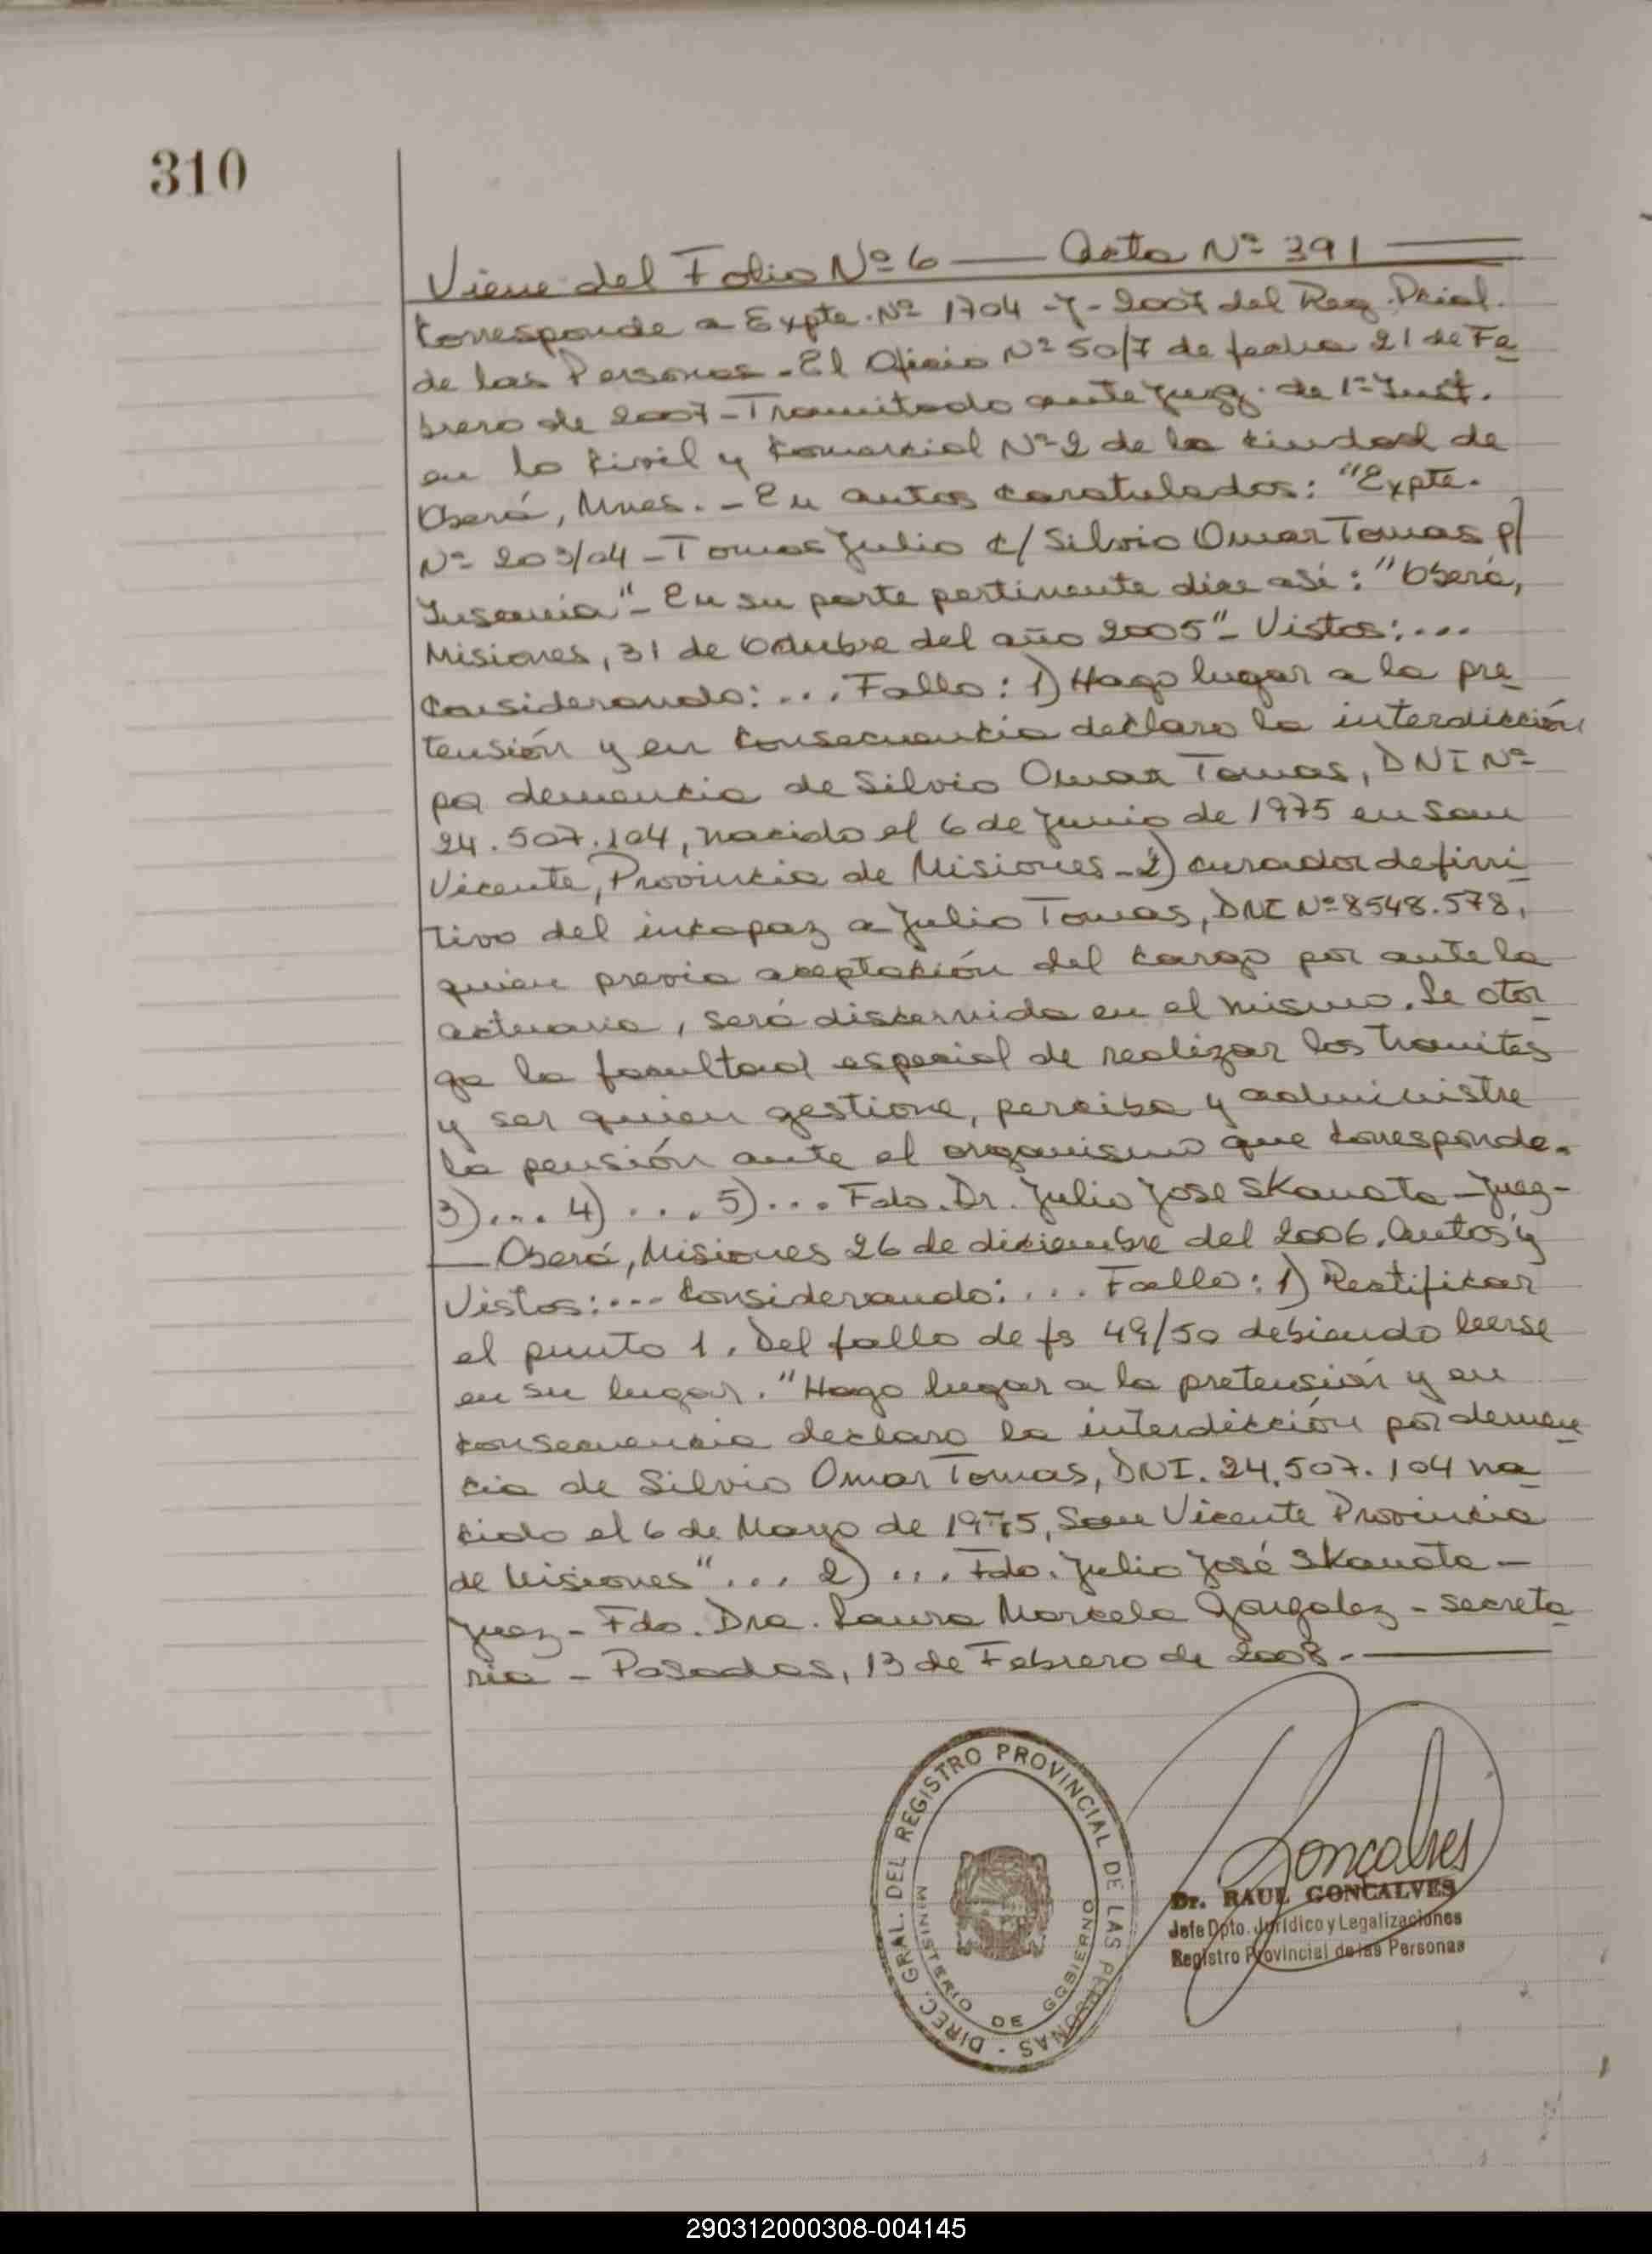 310
Viene del Folio Nº 6 — Acta Nº 391
Corresponde a Expte. Nº 1704 -J- 2007 del Reg. Pcial.
de las Personas - El Oficio Nº 50/7 de fecha 21 de Fe
brero de 2007 - Tramitado ante Juzg. de 1ª Inst.
en lo Civil y Comercial Nº 2 de la Ciudad de
Oberá, Mnes. - En autos caratulados: "Expte.
Nº 203/04 - Tomas Julio c/ Silvio Omar Tomas p/
Insania" - En su parte pertinente dice así: "Oberá,
Misiones, 31 de Octubre del año 2005" - Vistos: ...
Considerando: ... Fallo: 1) Hago lugar a la pre
tensión y en Consecuencia declaro la interdicción
por demencia de Silvio Omar Tomas, DNI Nº
24.507.104, nacido el 6 de Junio de 1975 en San
Vicente, Provincia de Misiones - 2) curador defini
tivo del incapaz a Julio Tomas, DNI Nº 8548.578,
quien previa aceptación del Cargo por ante la
actuaria, será discernido en el mismo. Se otor
ga la facultad especial de realizar los tramites
y ser quien gestione, perciba y administre
la pensión ante el organismo que Corresponde.
3) ... 4) ... 5) ... Fdo. Dr. Julio Jose Skanata - Juez -
— Oberá, Misiones 26 de diciembre del 2006. Autos y
Vistos: ... Considerando: ... Fallo: 1) Rectificar
el punto 1. Del fallo de fs 49/50 debiendo leerse
en su lugar. "Hago lugar a la pretensión y en
consecuencia declaro la interdicción por demen
cia de Silvio Omar Tomas, DNI. 24.507.104 na
cido el 6 de Mayo de 1975, San Vicente Provincia
de Misiones" ... 2) ... Fdo. Julio José Skanata -
Juez - Fdo. Dra. Laura Marcela Gonzalez - secreta
ria - Posadas, 13 de Febrero de 2008. -
DIREC. GRAL. DEL REGISTRO PROVINCIAL DE LAS PERSONAS -
MINISTERIO DE GOBIERNO
Goncalves
Dr. RAUL GONCALVES
Jefe Dpto. Jurídico y Legalizaciones
Registro Provincial de las Personas
290312000308-004145